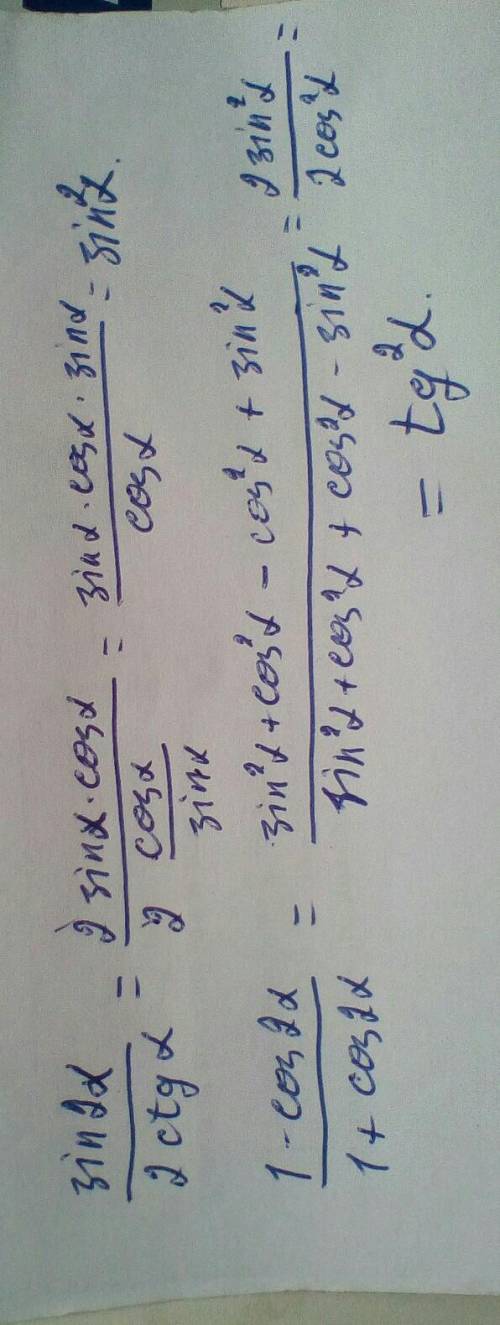 sin2α / 2ctgα = 2 sinα·cosα / 2 cosα/sinα = sinα·cosα·sinα / cosα = sin²α.
1-cos2α / 1+cos2α = sin²α+cos²α-cos²α+sin²α / sin²α+cos²α+cos²α-sin²α = 2sin²α / 2cos²α =
= tg²α.